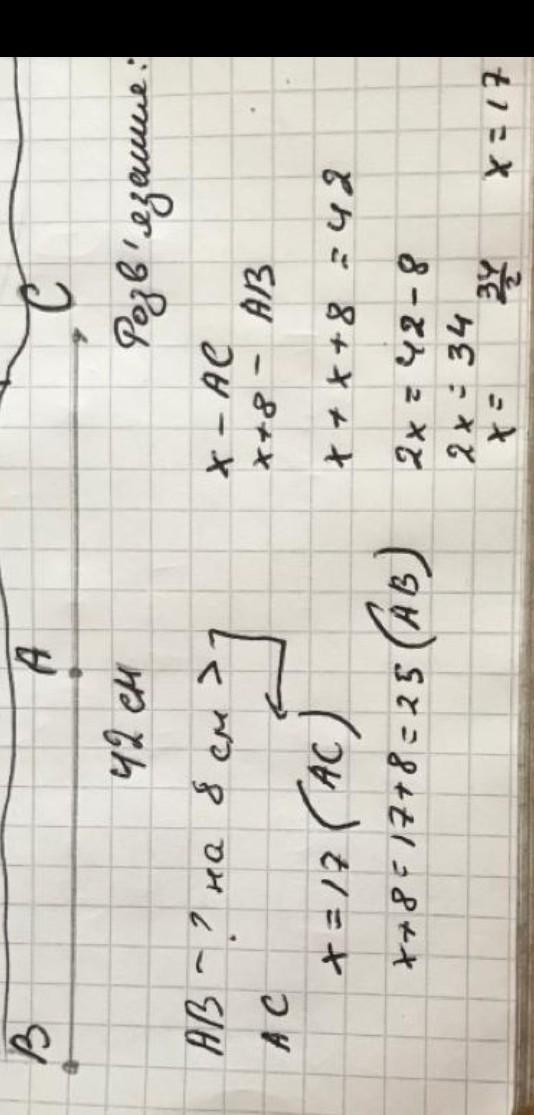 B A C
42 см
AB - ? на 8 см >
AC
x = 17 (AC)
x+8=17+8=25 (AB)
Розв'язання:
x - AC
x+8 - AB
x + x + 8 = 42
2x = 42 - 8
2x = 34
x = 34/2 x = 17